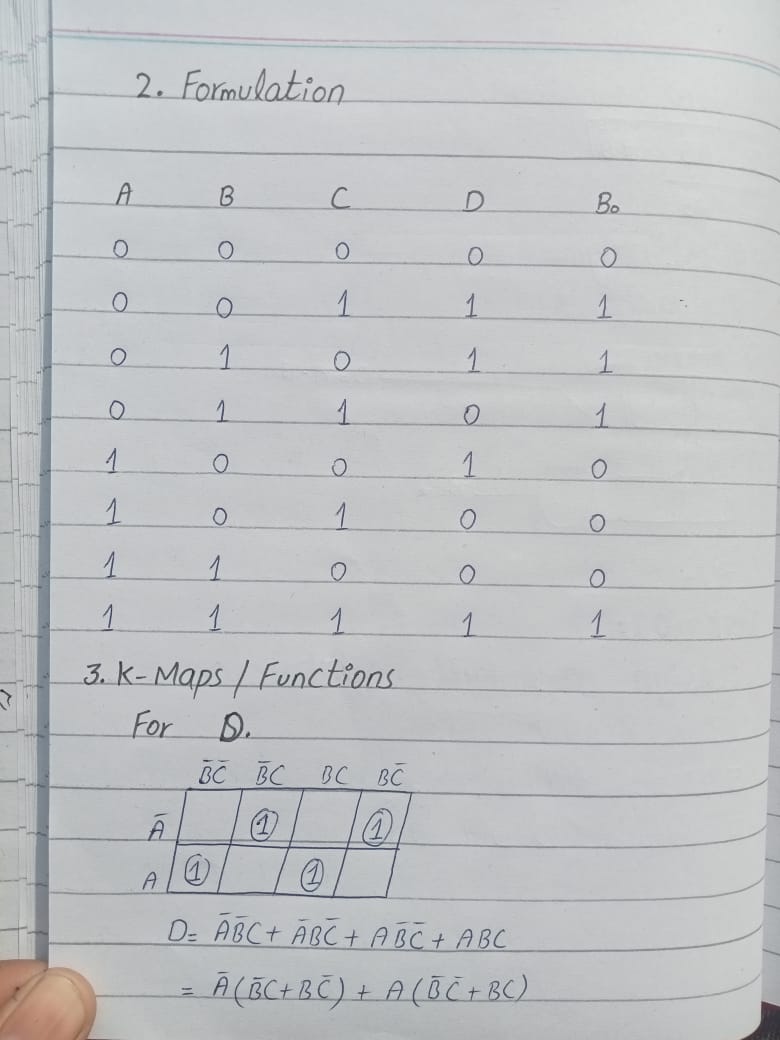 2. Formulation
A B C D B₀
0 0 0 0 0
0 0 1 1 1
0 1 0 1 1
0 1 1 0 1
1 0 0 1 0
1 0 1 0 0
1 1 0 0 0
1 1 1 1 1
3. K-Maps / Functions
For D.
B̄C̄ B̄C BC BC̄
Ā 1 1
A 1 1
D= ĀB̄C + ĀBC̄ + AB̄C̄ + ABC
= Ā(B̄C+BC̄) + A(B̄C̄+BC)